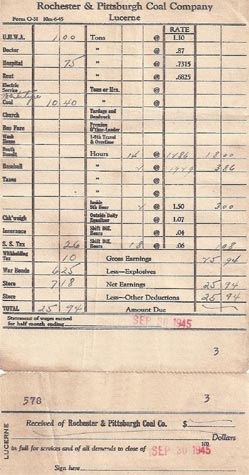 Rochester & Pittsburgh Coal Company
Form O-31 10m-6-45 Lucerne
RATE
U.M.W.A. 1.00 Tons @ 1.10
Doctor " @ .87
Hospital 75 " @ .7315
Rent " @ .6825
Electric Service Tons or Hrs. @
Coal 10 40 " @
Church Yardage and Deadwork
Bus Fare
Wash House 1-5th Travel & Overtime
Death Benefit Hours 14 @ 1286 18 00
Baseball " @ 3 86
Taxes " @
" @
Inside 9th hour @ 1.50 3 00
Chk'weigh Outside Daily Equalizer @ 1.07
Insurance Shift Diff. Hours @ .04
S. S. Tax 26 Shift Diff. Hours 18 @ .06 1 08
Withholding Tax 10 Gross Earnings 25 94
War Bonds 6 25 Less—Explosives
Store 7 18 Net Earnings 25 94
Store Less—Other Deductions 25 94
TOTAL 25 94 Amount Due
Statement of wages earned for half month ending SEP 30 1945
3
578 3
LUCERNE
Received of Rochester & Pittsburgh Coal Co. $
Dollars
in full for services and of all demands to close of SEP 30 1945
Sign here